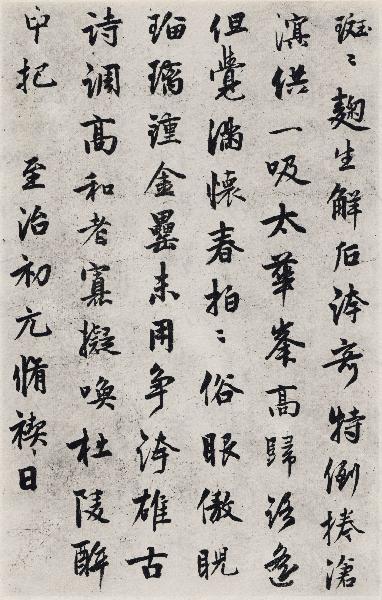 斑〻麹生解后誇奇特倒捲滄
溟供一吸太華峯高歸
但覺滿懷春拍〻俗眼傲睨
瑠璃鍾金罍未用爭誇雄古
詩調高和者寡擬喚杜陵酔
中把 至治初元脩禊日